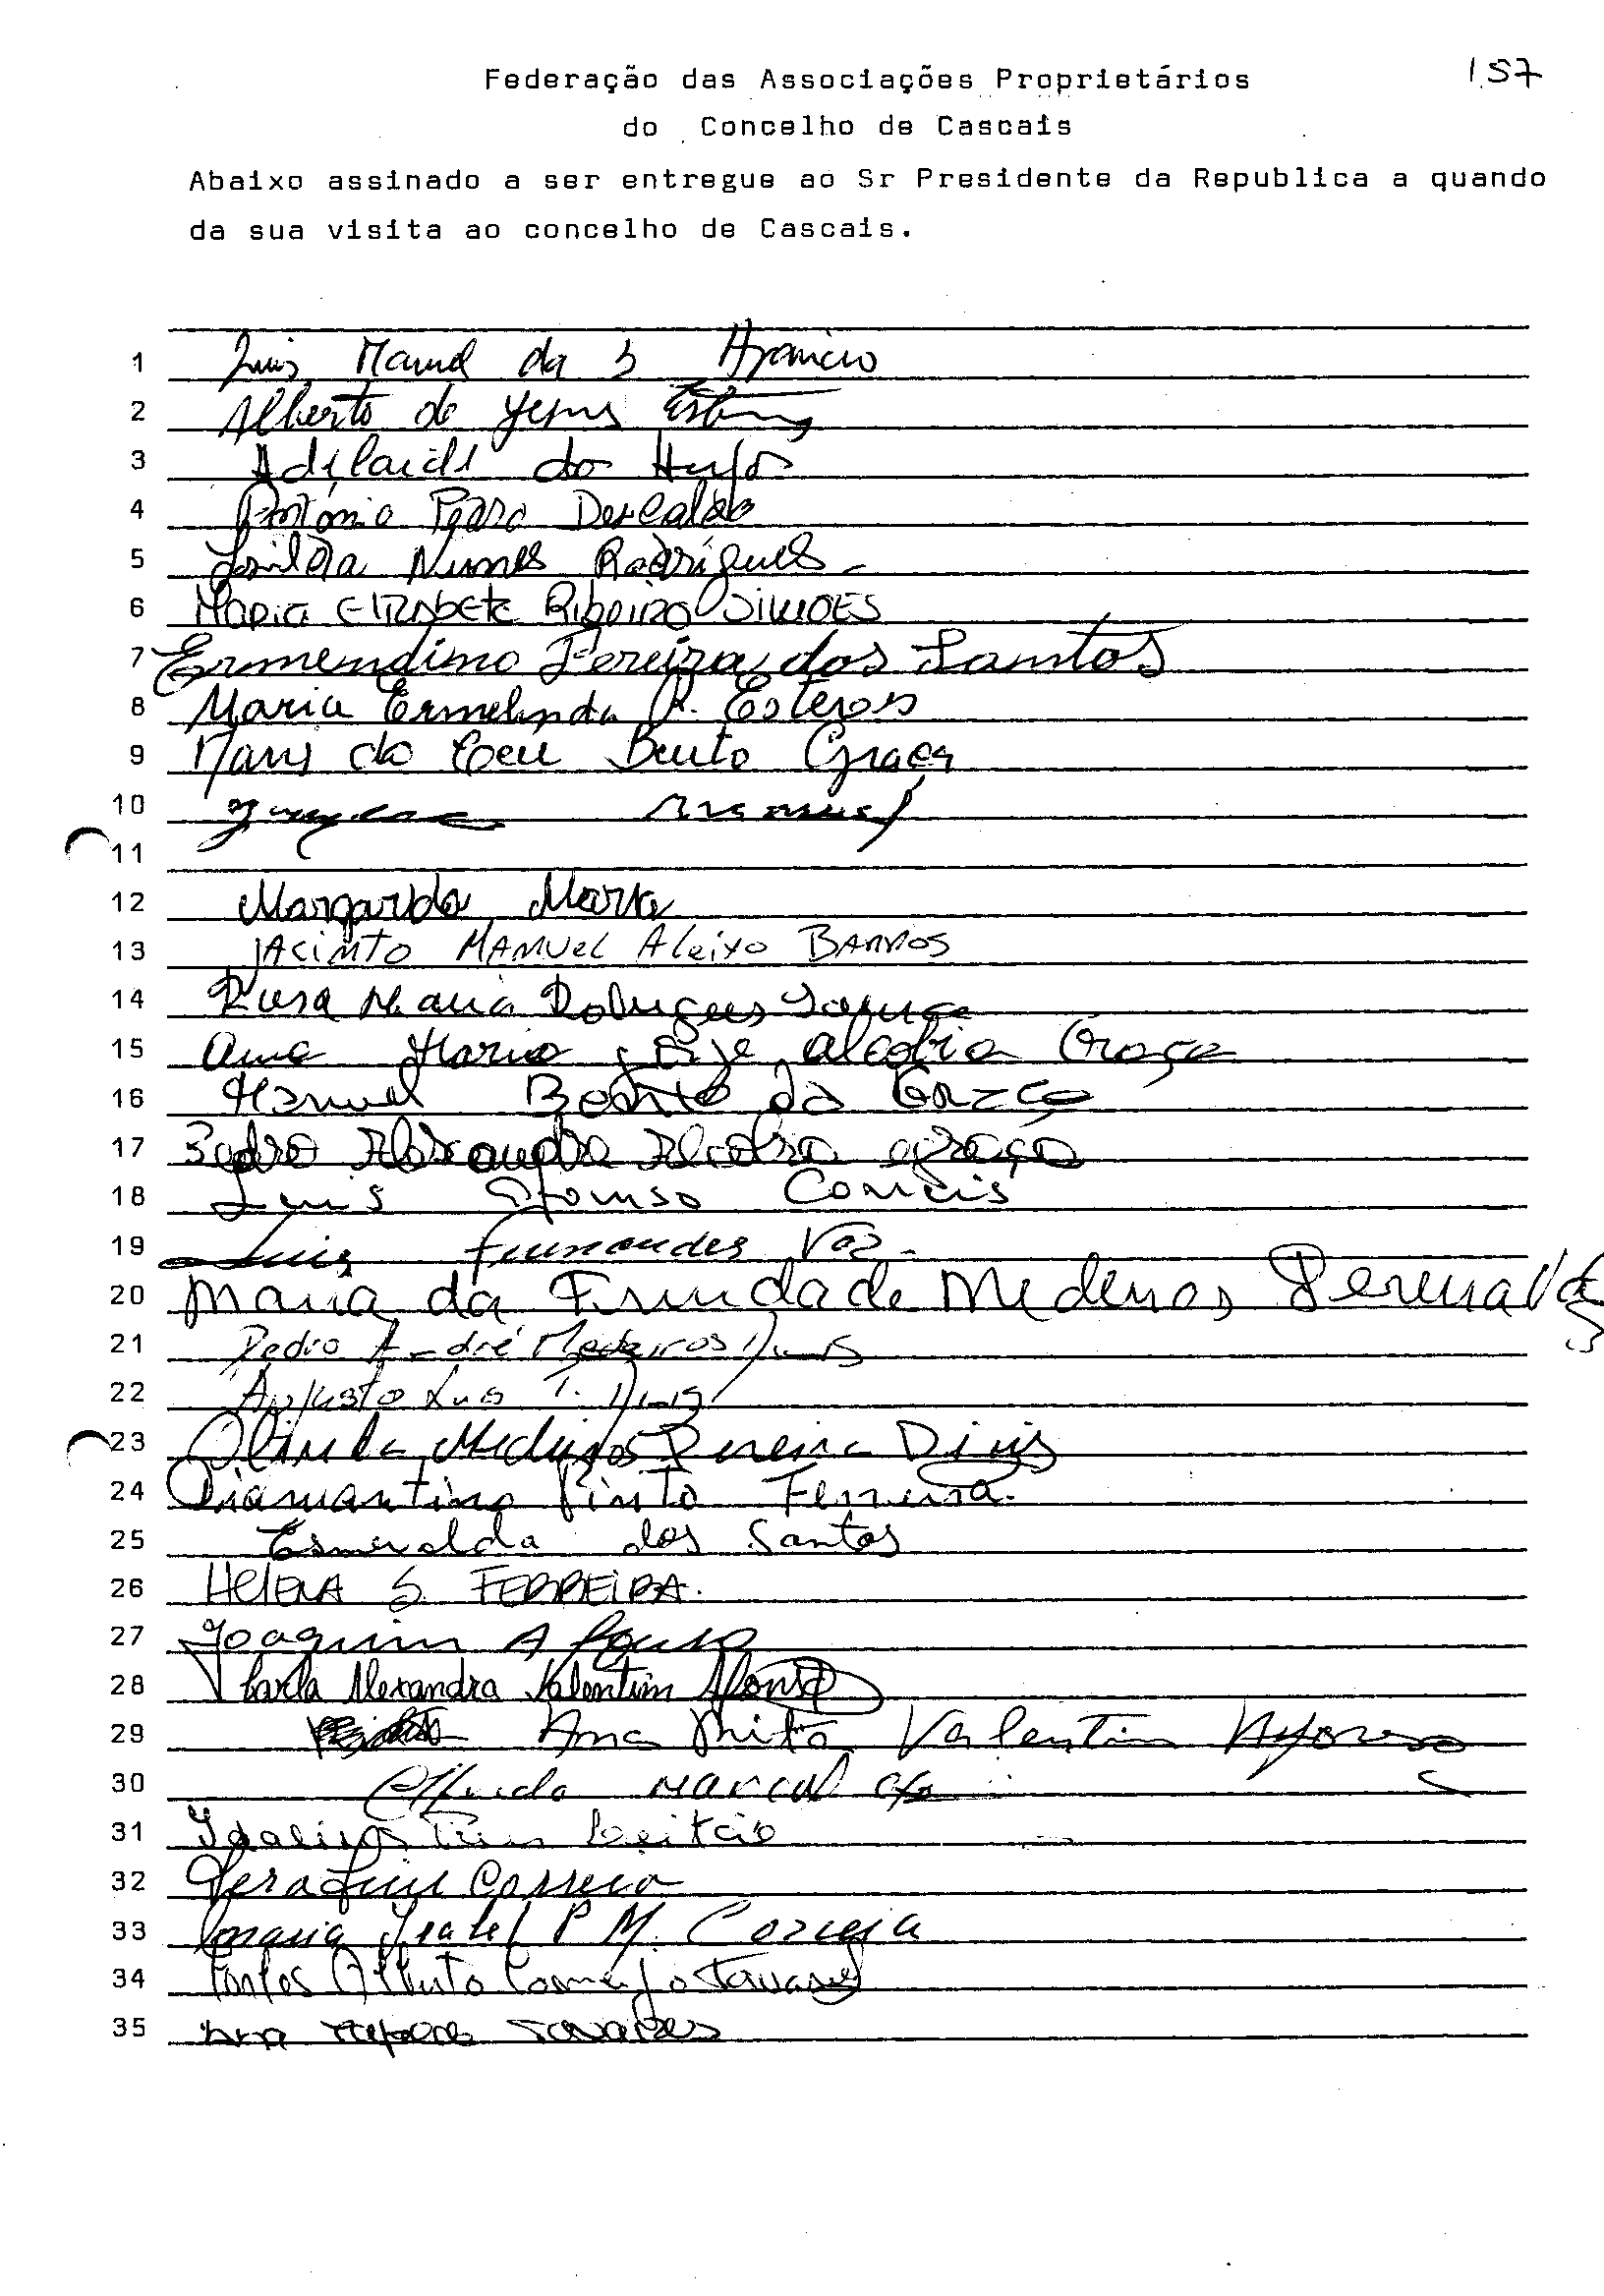 157
Federação das Associações Proprietários
do Concelho de Cascais
Abaixo assinado a ser entregue ao Sr Presidente da Republica a quando
da sua visita ao concelho de Cascais.
1 Luis Manuel da S
2 Alberto de Jesus
3 Adilaide do
4 António
5 Nunes Rodrigues
6 MARIA ElIZAbete Ribeiro SIMOES
7 Ermendino Pereira dos Santos
8 Maria Ermelinda R. Esteves
9 Maria do Ceu Bento Graça
10 Manuel
11
12 Margarida Marta
13 JACINTO MANUEL Aleixo BARROS
14 Rosa Maria Rodrigues
15 Ana Maria alcobia Graça
16 Manuel Bento da Graça
17 Pedro Alexandre Alcobia graça
18 Luis Afonso
19 Luis Fernandes Vaz
20 Maria da Trindade Medeiros Pereira
21 Pedro André Medeiros Dinis
22 Augusto Luis T. Dinis
23 Olinda Medeiros Pereira Dinis
24 Diamantino Pinto Ferreira.
25 Esmeralda dos Santos
26 HELENA S. FERREIRA.
27 Joaquim Afonso
28 Carla Alexandra Valentim Afonso
29 Ana Rita Valentim Afonso
30 Marcal
31 Leitão
32 Serafim Correia
33 Maria Isabel P M. Correia
34 Carlos Alberto Tavares
35 Tavares